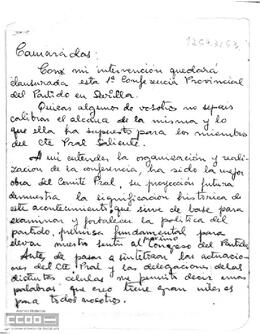 Camaradas:
Con mi intervención quedará
clausurada esta 1ª Conferencia Provincial
del Partido en Sevilla.
Quizas algunos de vosotros no sepais
calibrar el alcance de la misma y lo
que ella ha supuesto para los miembros
del Cte Pral Saliente.
A mi entender la organización y reali-
zacion de la conferencia, ha sido la mejor
obra del Comité Pral, su proyección futura
demuestra la significacion histórica de
este acontecimiento que sirve de base para
examinar y fortalecer la politica del
partido, premisa fundamental para
llevar nuestro sentir al Congreso del Partido
Antes de pasar a sintetizar las actuaciones
del Cte Pral y las delegaciones de las
distintas células me permito decir unas
palabras que creo tiene gran interes
para todos nosotros.
CCOO